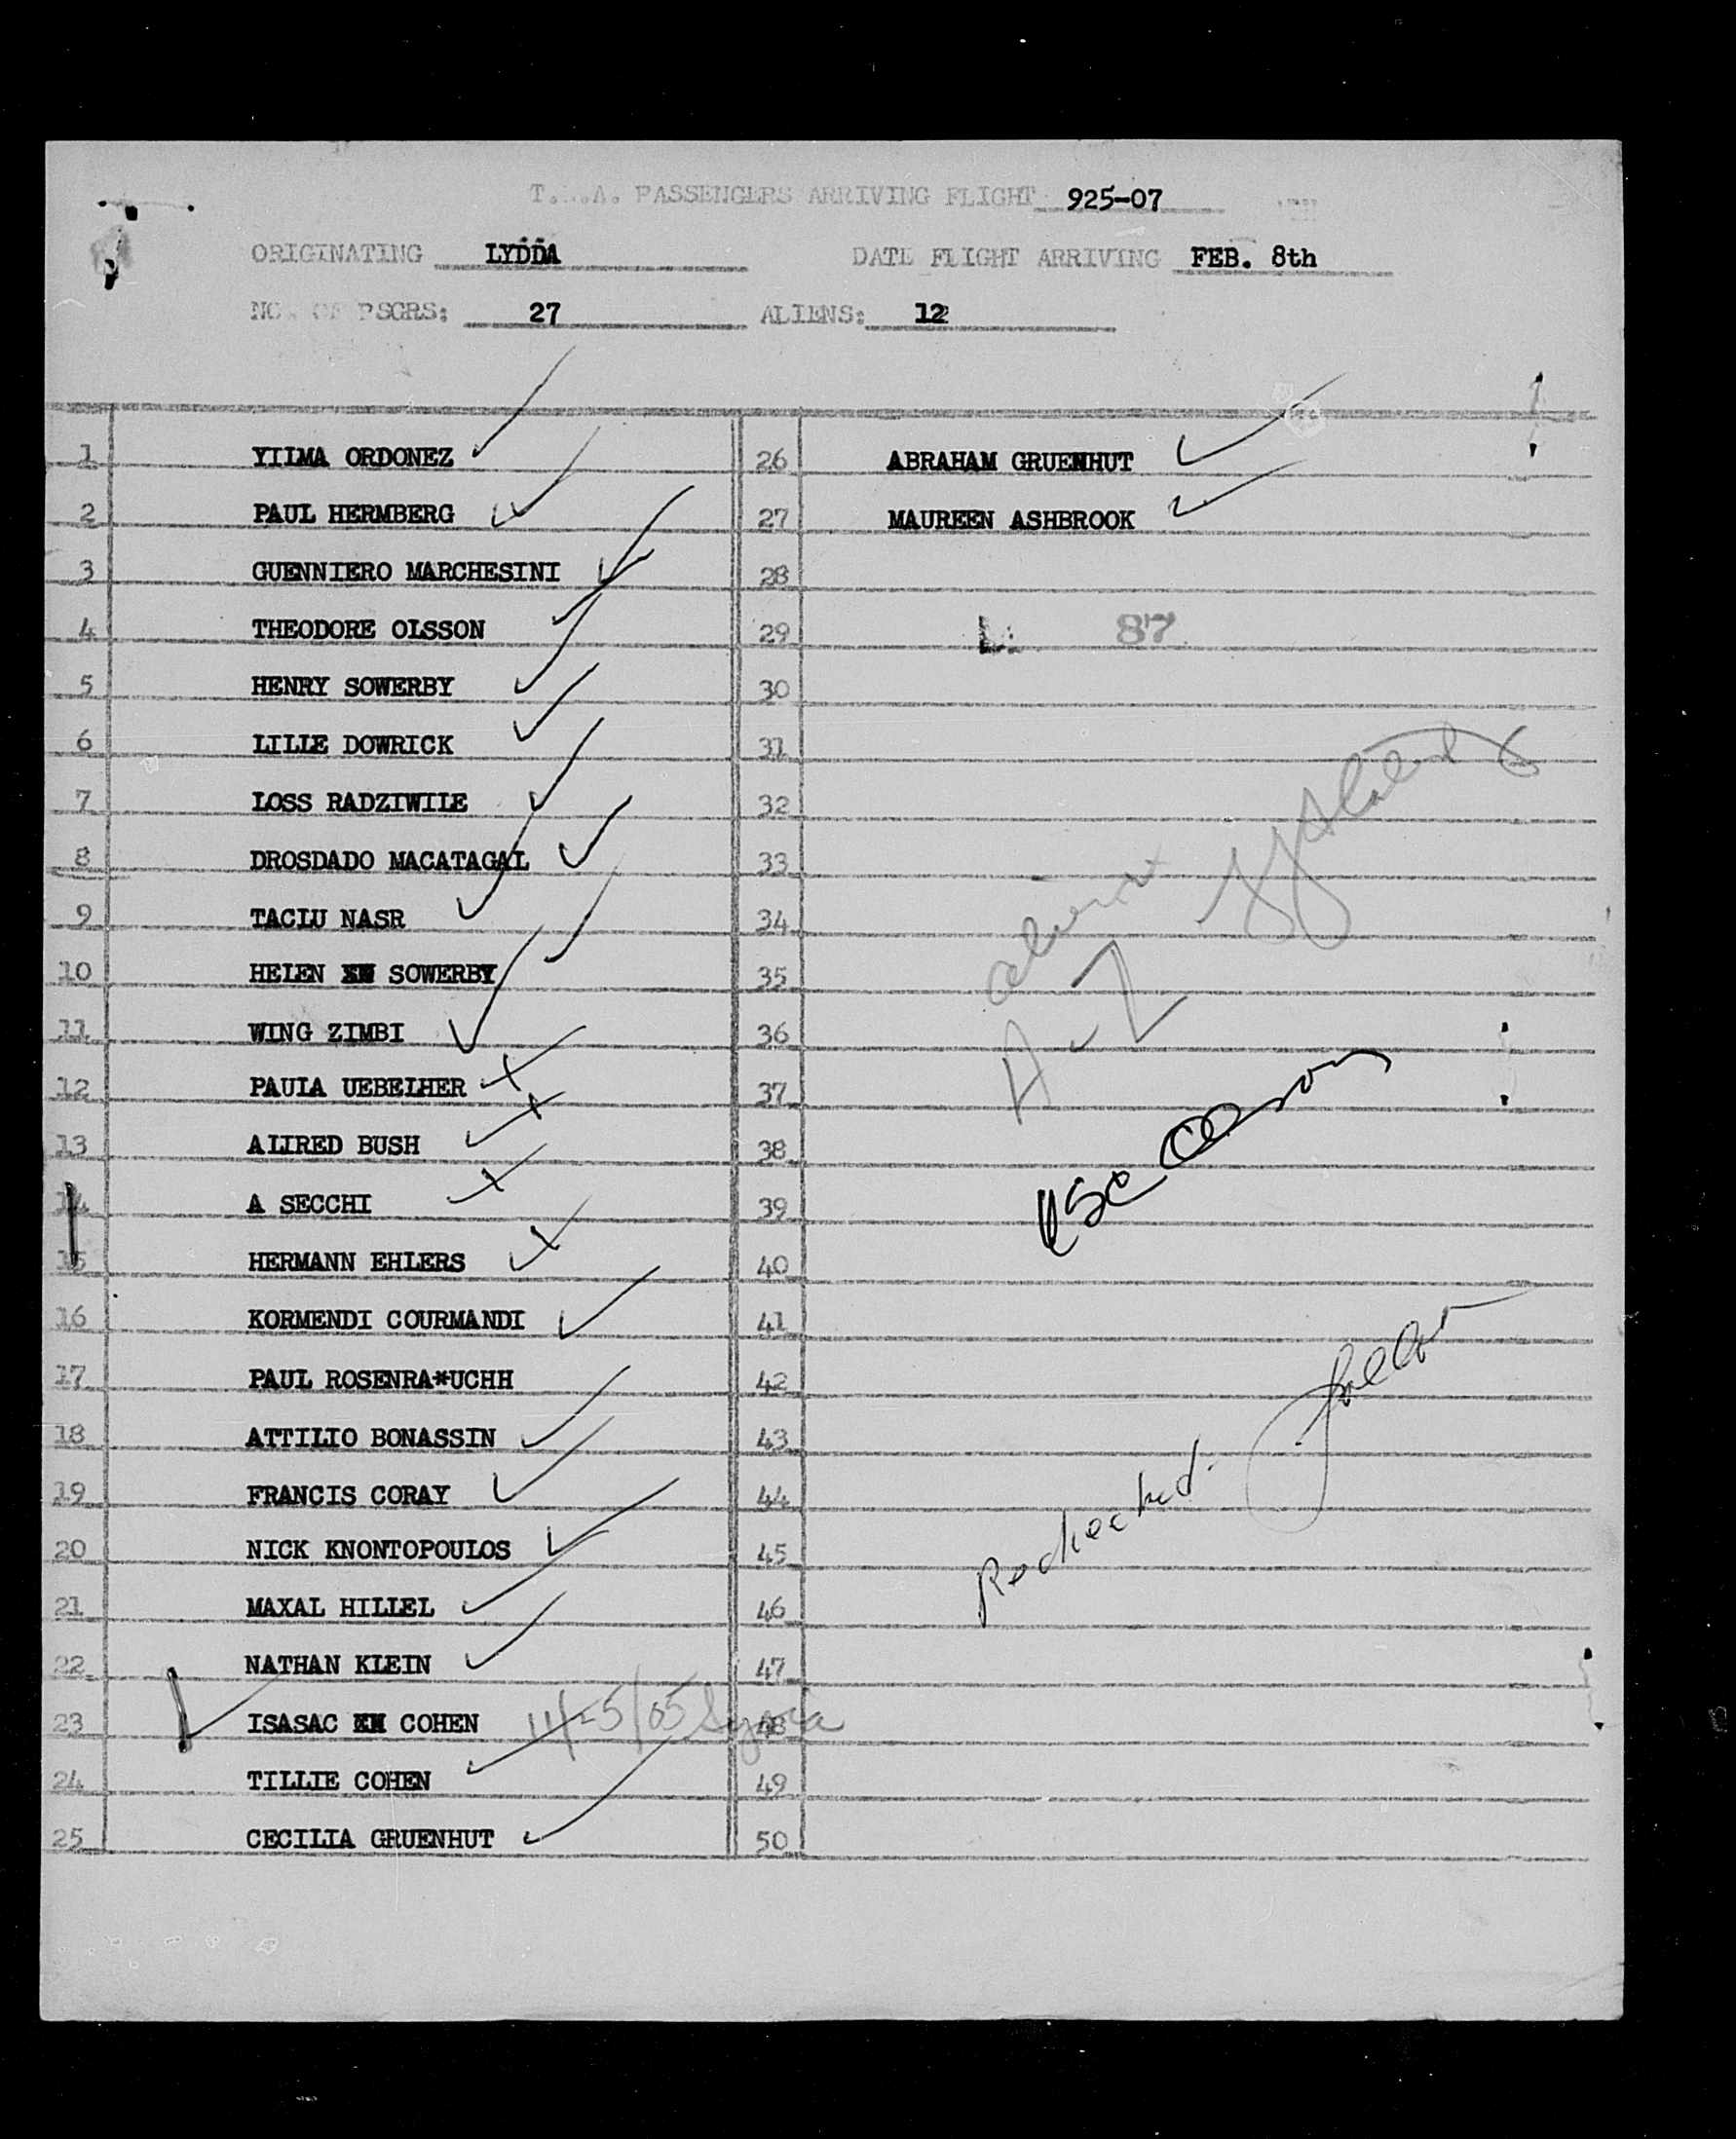 T.W.A. PASSENGERS ARRIVING FLIGHT 925-07
ORIGINATING LYDDA DATE FLIGHT ARRIVING FEB. 8th
NO. OF PSGRS: 27 ALIENS: 12
1 YILMA ORDONEZ
2 PAUL HERMBERG
3 GUENNIERO MARCHESINI
4 THEODORE OLSSON
5 HENRY SOWERBY
6 LILLE DOWRICK
7 LOSS RADZIWILE
8 DROSDADO MACATAGAL
9 TACIU NASR
10 HELEN SOWERBY
11 WING ZIMBI
12 PAULA UEBELHER
13 ALIRED BUSH
14 A SECCHI
15 HERMANN EHLERS
16 KORMENDI COURMANDI
17 PAUL ROSENRA*UCHH
18 ATTILIO BONASSIN
19 FRANCIS CORAY
20 NICK KNONTOPOULOS
21 MAXAL HILLEL
22 NATHAN KLEIN
23 ISASAC COHEN 11/25/05 Syria
24 TILLIE COHEN
25 CECILIA GRUENHUT
26 ABRAHAM GRUENHUT
27 MAUREEN ASHBROOK
28
29 87
30
31
32
33
34
35
36 A-Z
37
38
39
40
41
42
43
44
45
46 Rechecked
47
48
49
50